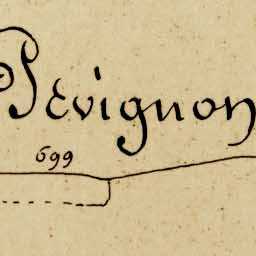 Pévignon
699